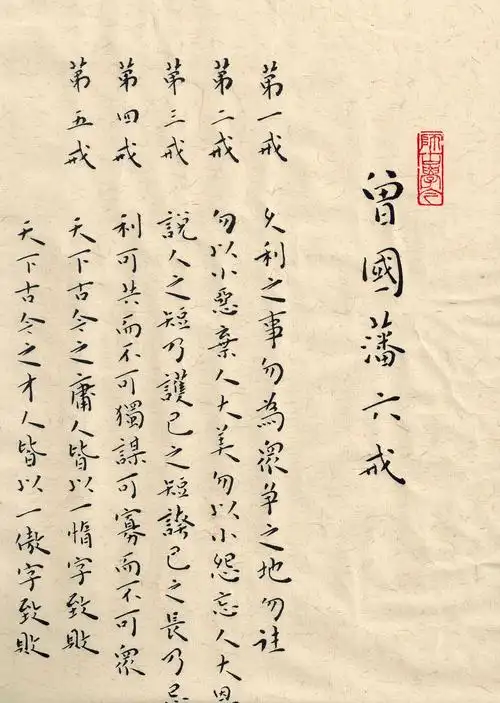 曾國藩六戒
第一戒 久利之事勿為衆争之地勿往
第二戒 勿以小惡棄人大美勿以小怨忘人大恩
第三戒 說人之短乃護己之短誇己之長乃忌
第四戒 利可共而不可獨謀可寡而不可衆
第五戒 天下古今之庸人皆以一惰字致敗
天下古今之才人皆以一傲字致敗